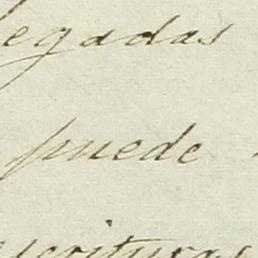 egadas
puede
scrituras